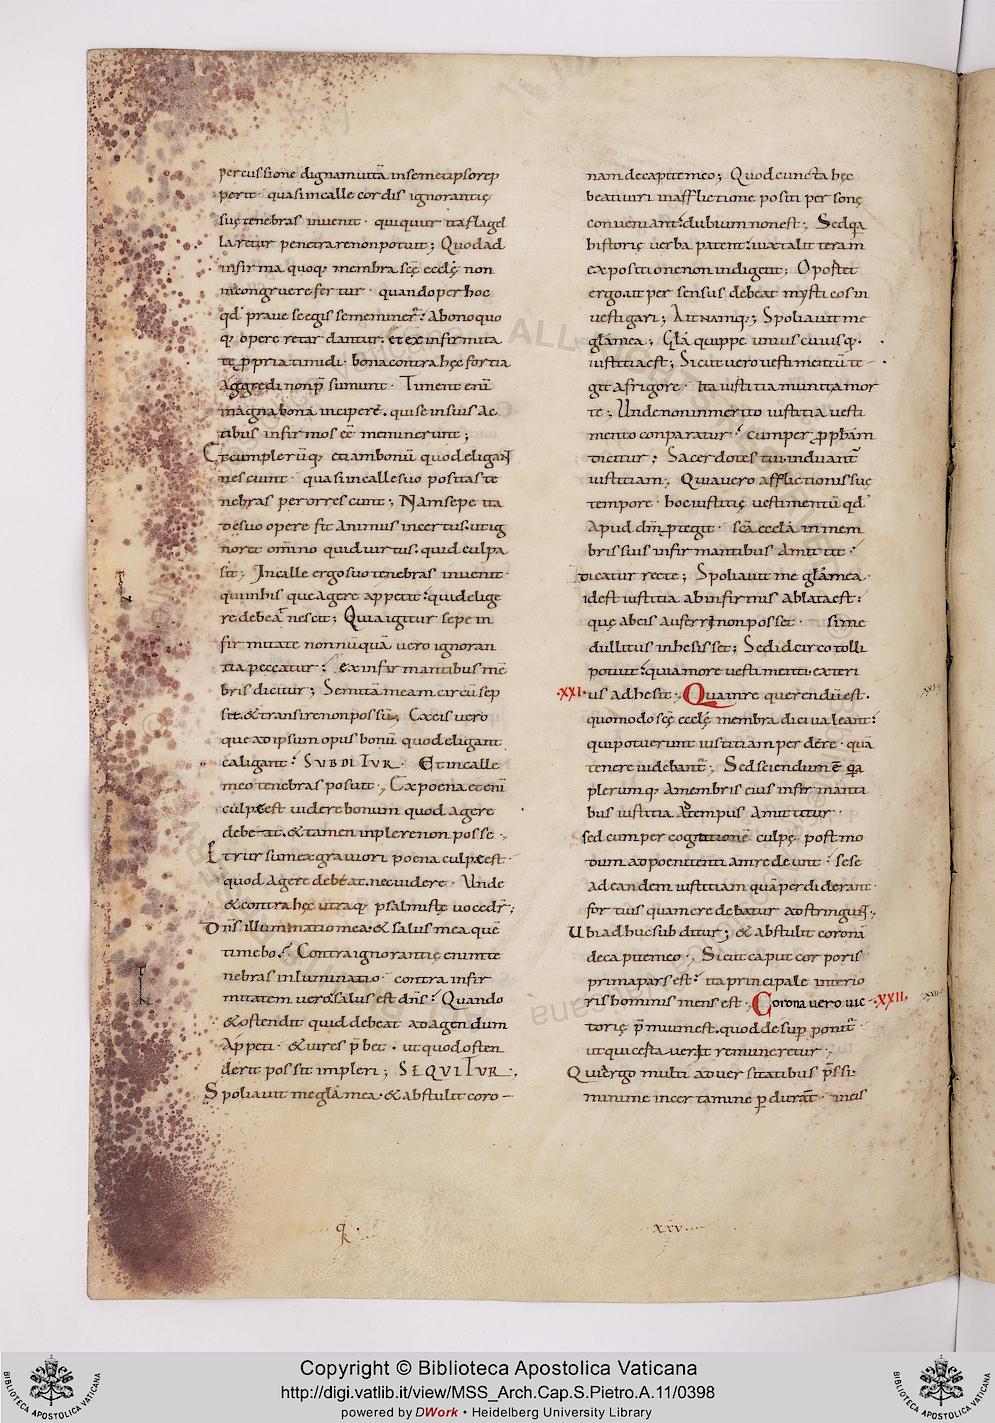 percussione digna multa in semetipso rep
perit · quasi in calle cordis ignorantię
suę tenebras invenit · qui quur ita flagel
laretur penetrare non potuit; Quod ad
infirma quoq; membra scę ecclę non
incongruere fertur · quando per hoc
qd prave se egisse meminer̄: A bono quo
q; opere retardantur · et ex infirmita
te ppria timidi · bona contra hęc fortia
Aggredi non p̄sumunt · Timent enī
magna bona incipere · qui se in suis Ac
tibus infirmos eē meminerunt;
Et cū plerūq; etiam bonū quod eligant
nesciunt · quasi in calle suo positas te
nebras perhorrescunt; Nam sepe ita
de suo opere fit Animus incertus · ut ig
noret omīno quid virtus · quid culpa
sit; In calle ergo suo tenebras invenit ·
qui in his que agere appetit: quid elige
re debeat nescit; Quia igitur sepe in
firmitate nonnūquā vero ignoran
tia peccatur: ex infirmantibus mē
bris dicitur; Semitā meam circū sep
sit · & transire non possū; Ex eis vero
que ad ipsum opus bonū quod eligant
caligant: SUBDITUR · Et in calle
meo tenebras posuit; Ex poena etenī
culpę est videre bonum quod agere
debeat · & tamen inplere non posse ·
Et rursum ex graviori poena culpę est ·
quod Agere debeat · nec videre · Unde
& contra hęc utraq; psalmistę voce dr̄;
Dnš illuminatio mea · & salus mea quē
timebo · Contra ignorantię enim te
nebras inluminatio · contra infir
mitatem vero salus est dnš: Quando
& ostendit quid debeat ad agendum
Appeti · & vires p̄bet · ut quod osten
derit possit impleri; SEQUITUR ·
Spoliavit me glā mea · & abstulit coro —
q
nam de capite meo; Quod cuncta hęc
beati viri in afflictione positi personę
conveniant: dubium non est; Sed qa
historię verba patent: iuxta litteram
expositione non indigent; Oportet
ergo ut per sensus debeat mysticos in
vestigari; Ait namq; Spoliavit me
glā mea; Glā quippe uniuscuiusq;
iustitia est; Sicut vero vestimentū te
git a frigore · Ita iustitia munit a mor
te; Unde non inmerito iustitia vesti
mento conparatur: cum per pphām
dicitur; Sacerdotes tui induant
iustitiam; Quia vero afflictionis suę
tempore · hoc iustitię vestimentū qd
Apud dm̄ ptegit · scā ecclā in mem
bris suis infirmantibus Amittit
dicatur recte; Spoliavit me glā mea ·
id est iustitia ab infirmis ablata est:
quę ab eis Auferri non posset · si me
dullitus inhesisset; Sed idcirco tolli
potuit: quia more vestimenti exteri
·XXI· us adhesit · Quam re querendū est ·
quomodo scę ecclę membra dici valeant:
qui potuerunt iustitiam perdere · quā
tenere videbant; Sed sciendum ē qa
plerumq; A membris eius infirmanti
bus iustitia Ad tempus Amittitur ·
sed cum per cogitationē culpę postmo
dum ad poenitentiam redeunt: sese
ad eandem iustitiam quā perdiderant ·
fortius quam credebatur adstringunt;
Ubi adhuc subditur; & abstulit coronā
de capite meo; Sicut caput corporis
prima pars est: ita principale interio
ris hominis mens est · Corona vero vic ·XXII·
torię p̄mium est · quod desup ponit̄ ·
ut qui certaverit remuneretur ·
Qui ergo multi adversitatibus p̄ssi ·
minime in certamine pdurāt · in eis
xxv
ALL RIGHTS RESERVED
Copyright © Biblioteca Apostolica Vaticana
http://digi.vatlib.it/view/MSS_Arch.Cap.S.Pietro.A.11/0398
powered by DWork • Heidelberg University Library
BIBLIOTECA APOSTOLICA VATICANA
BIBLIOTECA APOSTOLICA VATICANA